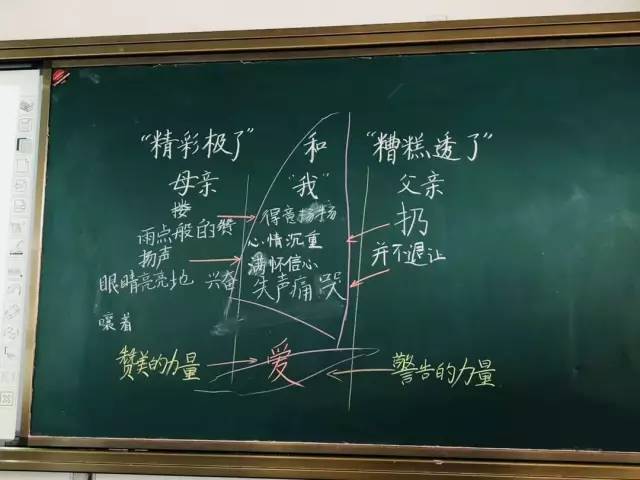 “精彩极了” 和 “糟糕透了”
母亲 “我” 父亲
搂 得意扬扬 扔
雨点般的赞 心情沉重 并不退让
扬声 满怀信心
眼睛亮亮地 兴奋 失声痛哭
嚷着
赞美的力量 爱 警告的力量